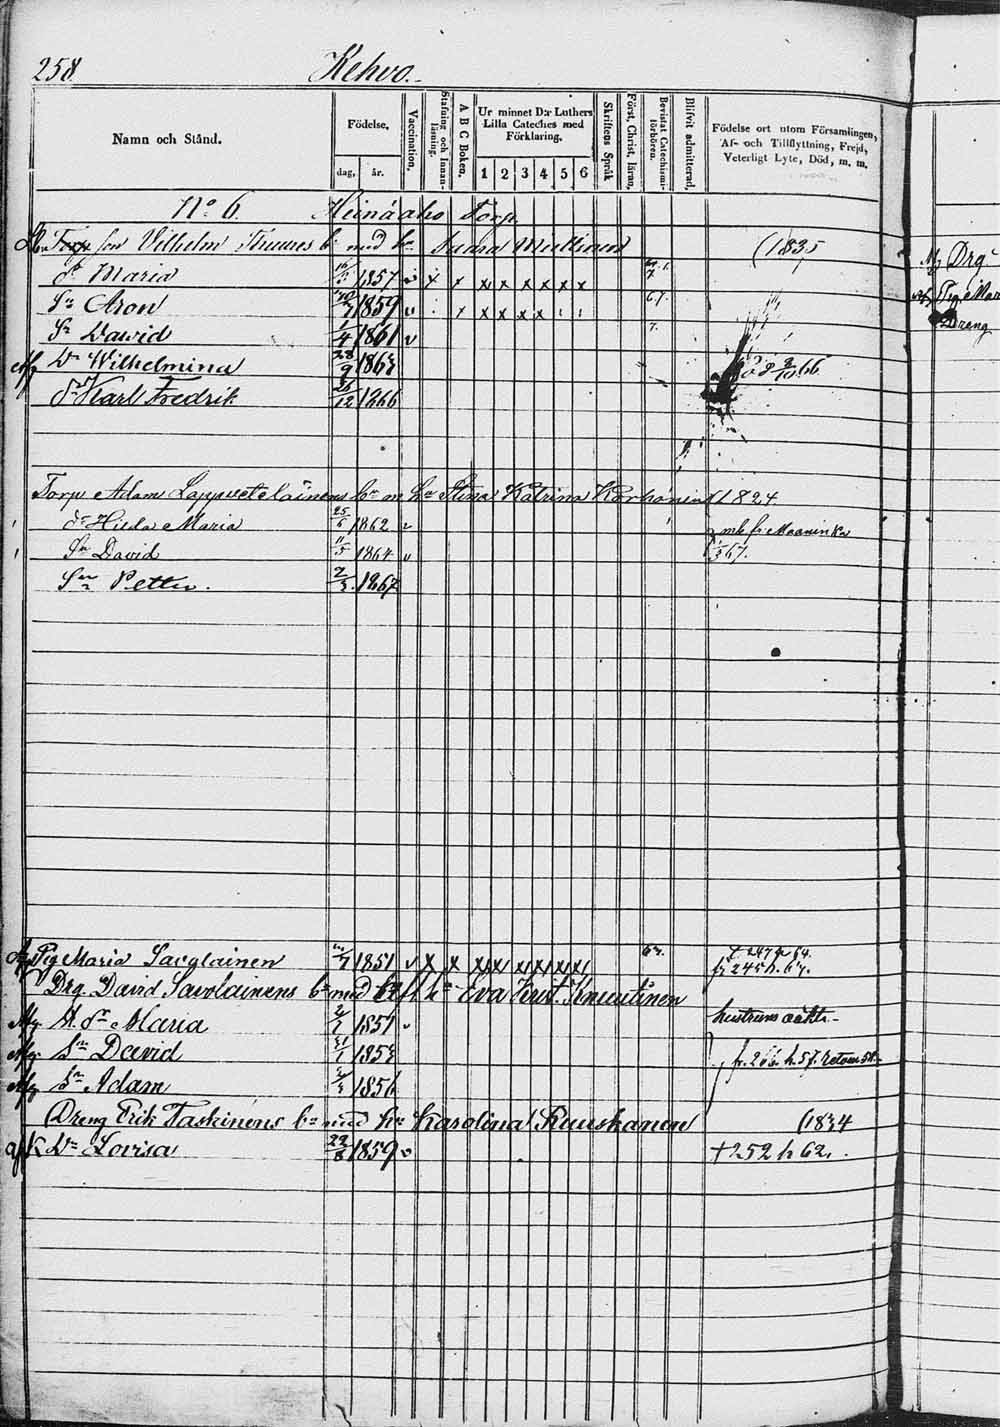 258. Kehvo.
Namn och Stånd.
Födelse,
dag, år.
Vaccination,
Stafning och Innanläsning.
A B C Boken.
Ur minnet D:r Luthers Lilla Cateches med Förklaring.
1 2 3 4 5 6
Skriftens Språk
Först, Christ, läran,
Bevistat Catechismiförhören.
Blifvit admitterad,
Födelse ort utom Församlingen, Af- och Tillflyttning, Frejd, Veterligt Lyte, Död, m. m.
No 6. Heinäaho Torp.
Torp son Vilhelm Thunes bn med hu (1835
dr Maria 1857 x x x x x x x x
Sn Aron 1859 v x x x x x 67.
Sn Dawid 1/4 1861 v 7.
Dr Wilhelmina 28/9 1863 död 66
Sn Karl Fredrik 12 1866
Torp Adam Lappveteläinens bn m hu Stina Katrina Korhonen 1824
dr Hilda Maria 25/6 1862 v mb fr Maaninka
Sn David 11/5 1864 v 67.
Sn Petter. 2/3 1867
Pig Maria Savolainen 1851 v x x x x x x x x 67. 247 p 64.
fr 245 h. 67.
Drg. David Savolainens bn med hu Eva Krist. Knuutinen
dr Maria 1851 v hustruns oäkta
Sn David 31/1 1853
Sn Adam 1856 fr. 266 h. 57. retour 58.
Dreng Erik Taskinens bn med hu Karolina Ruuskanen (1834
Dr Lovisa 22/8 1859 v + 252 h 62.
Drg
Pig Mar
Dreng